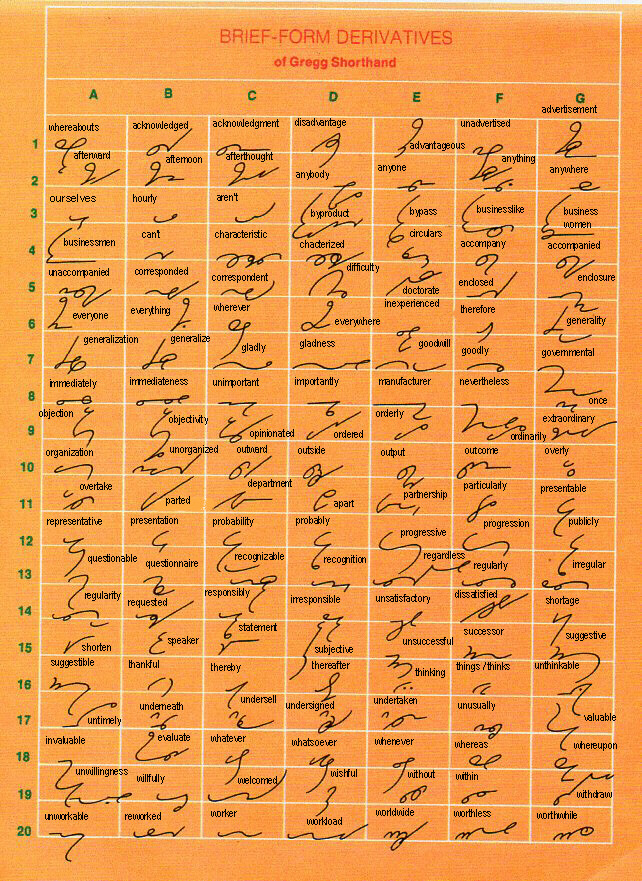 BRIEF-FORM DERIVATIVES
of Gregg Shorthand
A B C D E F G
1 whereabouts acknowledged acknowledgment disadvantage advantageous unadvertised advertisement
2 afterward afternoon afterthought anybody anyone anything anywhere
3 ourselves hourly aren't byproduct bypass businesslike business women
4 businessmen can't characteristic chacterized circulars accompany accompanied
5 unaccompanied corresponded correspondent difficulty doctorate enclosed enclosure
6 everyone everything wherever everywhere inexperienced therefore generality
7 generalization generalize gladly gladness goodwill goodly governmental
8 immediately immediateness unimportant importantly manufacturer nevertheless once
9 objection objectivity opinionated ordered orderly ordinarily extraordinary
10 organization unorganized outward outside output outcome overly
11 overtake parted department apart partnership particularly presentable
12 representative presentation probability probably progressive progression publicly
13 questionable questionnaire recognizable recognition regardless regularly irregular
14 regularity requested responsibly irresponsible unsatisfactory dissatisfied shortage
15 shorten speaker statement subjective unsuccessful successor suggestive
16 suggestible thankful thereby thereafter thinking things/thinks unthinkable
17 untimely underneath undersell undersigned undertaken unusually valuable
18 invaluable evaluate whatever whatsoever whenever whereas whereupon
19 unwillingness willfully welcomed wishful without within withdraw
20 unworkable reworked worker workload worldwide worthless worthwhile